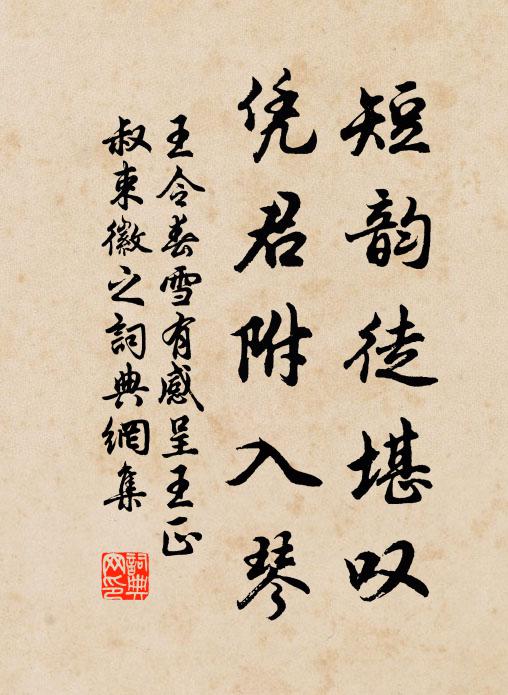 短韵徒堪叹
凭君附入琴
王令春雪有感呈王正
叔束徽之詞典網集
詞典
网印